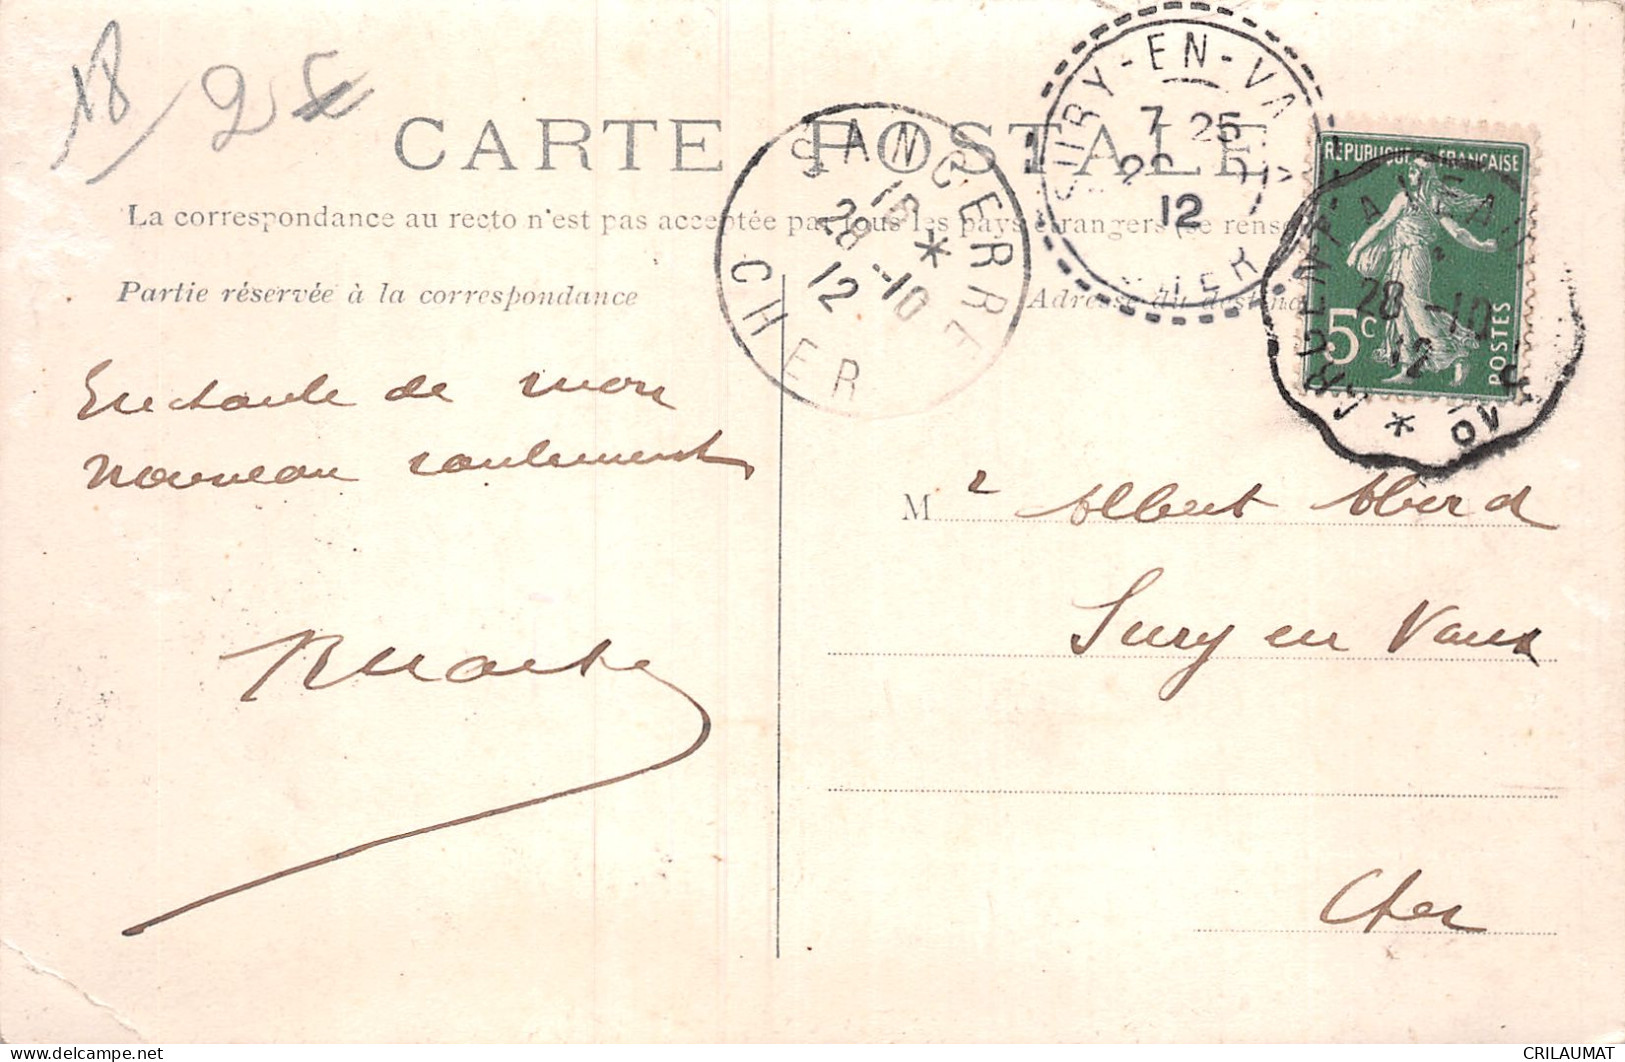 18 / 2 €
CARTE POSTALE
La correspondance au recto n'est pas acceptée par tous les pays étrangers (se rens
Partie réservée à la correspondance
Adresse du destina
SANCERRE
15 *
28 -10
12
CHER
SURY-EN-VAUX
7 25
12
CHER
REPUBLIQUE FRANÇAISE
5c
POSTES
ARGENT A
28 -10
12
*
de mon
nouveau roulement
Mr Albert
Sury en Vaux
Cher
CRILAUMAT